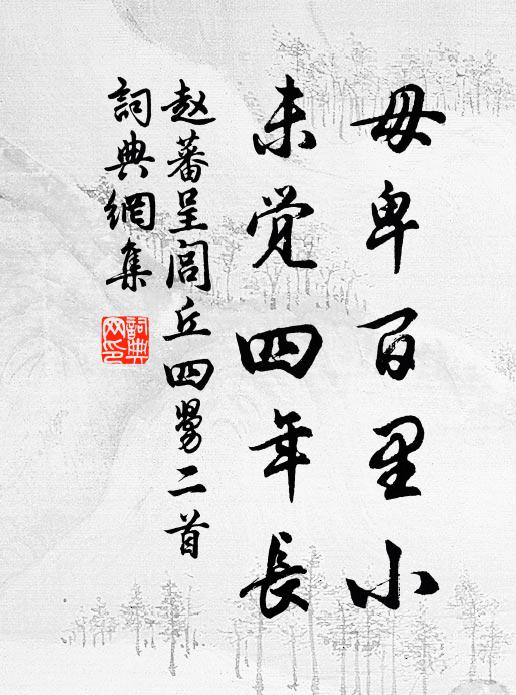 毋卑百里小
未觉四年長
赵蕃呈闾丘四舅二首
詞典網集
詞典网印